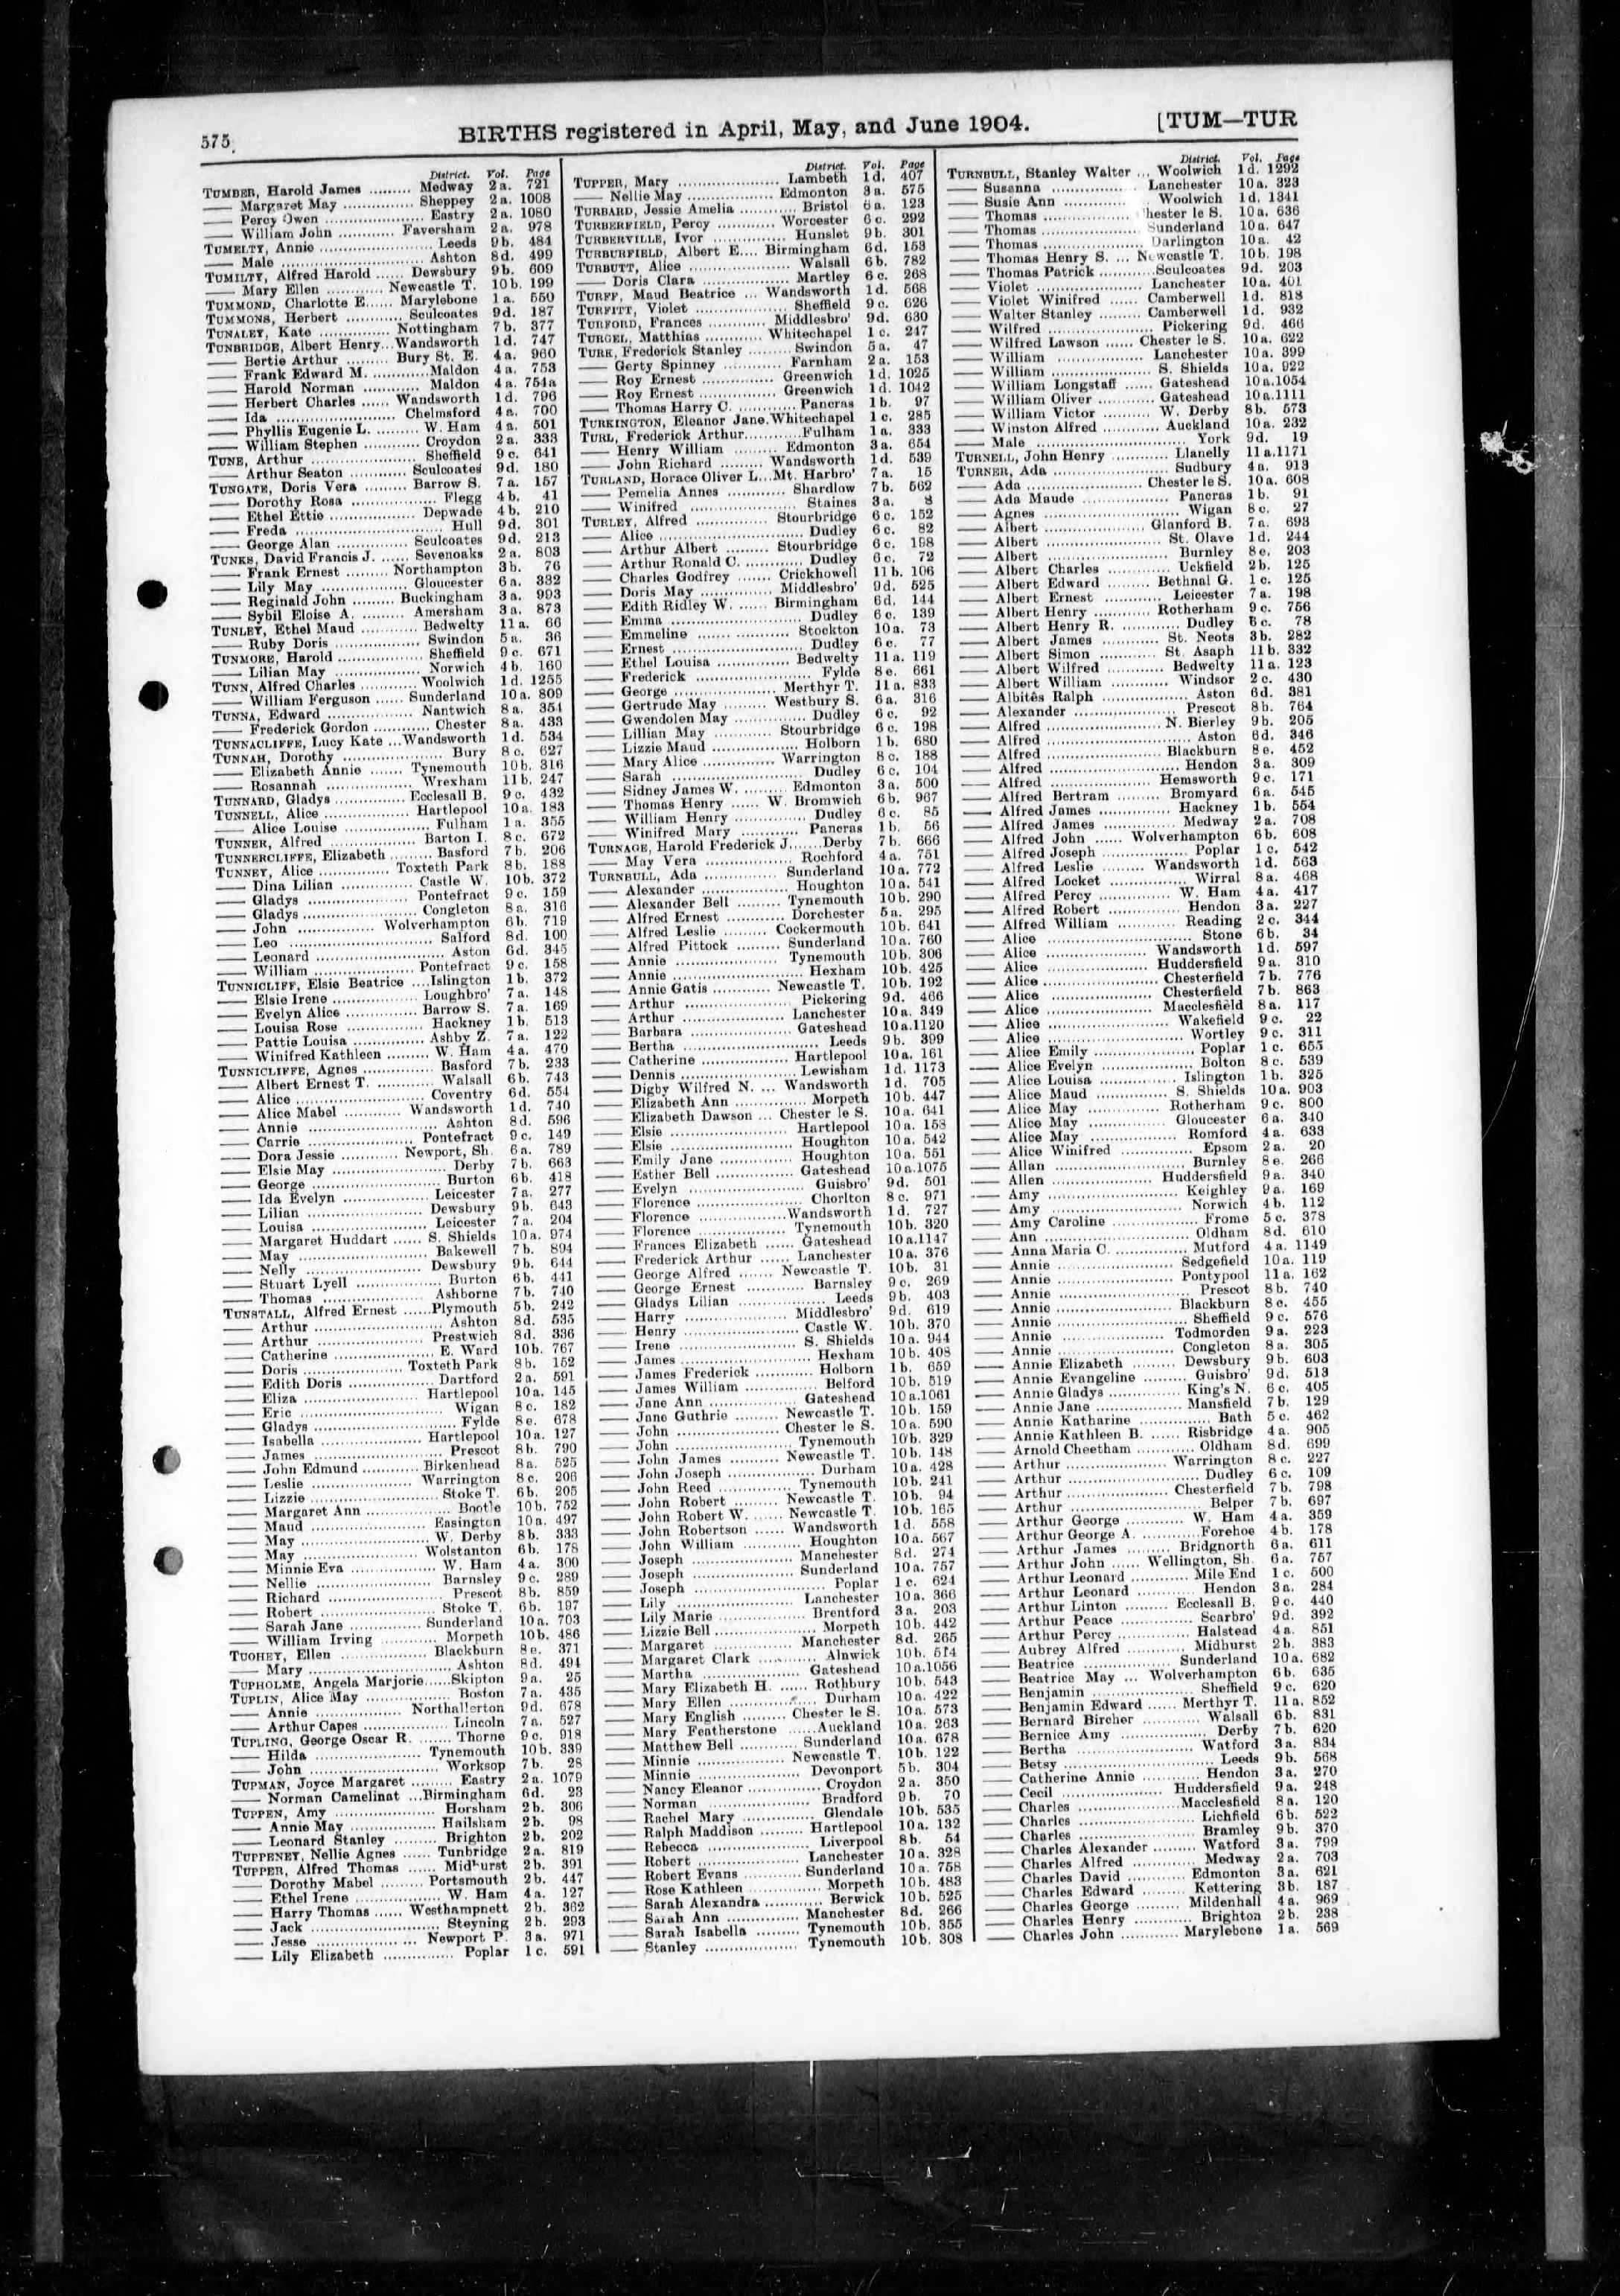 575.
BIRTHS registered in April, May, and June 1904.
[TUM—TUR
District. Vol. Page
TUMBER, Harold James ......... Medway 2 a. 721
—— Margaret May ............... Sheppey 2 a. 1008
—— Percy Owen ...................... Eastry 2 a. 1080
—— William John ............ Faversham 2 a. 978
TUMELTY, Annie ........................ Leeds 9 b. 484
—— Male .............................. Ashton 8 d. 499
TUMILTY, Alfred Harold ...... Dewsbury 9 b. 609
—— Mary Ellen ............ Newcastle T. 10 b. 199
TUMMOND, Charlotte E. ..... Marylebone 1 a. 550
TUMMONS, Herbert ............ Sculcoates 9 d. 187
TUNALEY, Kate ............... Nottingham 7 b. 377
TUNBRIDGE, Albert Henry...Wandsworth 1 d. 747
—— Bertie Arthur ......... Bury St. E. 4 a. 960
—— Frank Edward M. ............ Maldon 4 a. 753
—— Harold Norman ............ Maldon 4 a. 754a
—— Herbert Charles ...... Wandsworth 1 d. 796
—— Ida .......................... Chelmsford 4 a. 700
—— Phyllis Eugenie L. ......... W. Ham 4 a. 501
—— William Stephen ............ Croydon 2 a. 333
TUNE, Arthur ........................ Sheffield 9 c. 641
—— Arthur Seaton ............ Sculcoates 9 d. 180
TUNGATE, Doris Vera ......... Barrow S. 7 a. 157
—— Dorothy Rosa .................. Flegg 4 b. 41
—— Ethel Ettie .................. Depwade 4 b. 210
—— Freda ............................... Hull 9 d. 301
—— George Alan ............... Sculcoates 9 d. 213
TUNKS, David Francis J. ...... Sevenoaks 2 a. 803
—— Frank Ernest ......... Northampton 3 b. 76
—— Lily May ..................... Gloucester 6 a. 332
—— Reginald John ......... Buckingham 3 a. 993
—— Sybil Eloise A. ......... Amersham 3 a. 873
TUNLEY, Ethel Maud ............ Bedwelty 11 a. 66
—— Ruby Doris .................. Swindon 5 a. 36
TUNMORE, Harold .................. Sheffield 9 c. 671
—— Lilian May ..................... Norwich 4 b. 160
TUNN, Alfred Charles ............ Woolwich 1 d. 1255
—— William Ferguson ...... Sunderland 10 a. 809
TUNNA, Edward .................. Nantwich 8 a. 351
—— Frederick Gordon ............ Chester 8 a. 433
TUNNACLIFFE, Lucy Kate ...Wandsworth 1 d. 534
TUNNAH, Dorothy ........................ Bury 8 c. 627
—— Elizabeth Annie ....... Tynemouth 10 b. 316
—— Rosannah ..................... Wrexham 11 b. 247
TUNNARD, Gladys ............... Ecclesall B. 9 c. 432
TUNNELL, Alice .................. Hartlepool 10 a. 183
—— Alice Louise .................. Fulham 1 a. 355
TUNNER, Alfred .................. Barton I. 8 c. 672
TUNNERCLIFFE, Elizabeth ......... Basford 7 b. 206
TUNNEY, Alice ............... Toxteth Park 8 b. 188
—— Dina Lilian ............... Castle W. 10 b. 372
—— Gladys ..................... Pontefract 9 c. 159
—— Gladys ........................ Congleton 8 a. 316
—— John ............... Wolverhampton 6 b. 719
—— Leo ............................... Salford 8 d. 100
—— Leonard ........................... Aston 6 d. 345
—— William ..................... Pontefract 9 c. 158
TUNNICLIFF, Elsie Beatrice ....Islington 1 b. 372
—— Elsie Irene .................. Loughbro' 7 a. 148
—— Evelyn Alice ............... Barrow S. 7 a. 169
—— Louisa Rose ............... Hackney 1 b. 513
—— Pattie Louisa ............... Ashby Z. 7 a. 122
—— Winifred Kathleen ......... W. Ham 4 a. 470
TUNNICLIFFE, Agnes ............... Basford 7 b. 233
—— Albert Ernest T. ............ Walsall 6 b. 743
—— Alice ........................... Coventry 6 d. 554
—— Alice Mabel ............ Wandsworth 1 d. 740
—— Annie ........................... Ashton 8 d. 596
—— Carrie ..................... Pontefract 9 c. 149
—— Dora Jessie ............ Newport, Sh. 6 a. 789
—— Elsie May ........................ Derby 7 b. 663
—— George ........................... Burton 6 b. 418
—— Ida Evelyn .................. Leicester 7 a. 277
—— Lilian ........................ Dewsbury 9 b. 643
—— Louisa ........................ Leicester 7 a. 204
—— Margaret Huddart ...... S. Shields 10 a. 974
—— May ........................... Bakewell 7 b. 894
—— Nelly ........................ Dewsbury 9 b. 644
—— Stuart Lyell .................. Burton 6 b. 441
—— Thomas ..................... Ashborne 7 b. 740
TUNSTALL, Alfred Ernest ......Plymouth 5 b. 242
—— Arthur ........................... Ashton 8 d. 535
—— Arthur ........................ Prestwich 8 d. 336
—— Catherine ..................... E. Ward 10 b. 767
—— Doris ..................... Toxteth Park 8 b. 152
—— Edith Doris .................. Dartford 2 a. 591
—— Eliza ........................ Hartlepool 10 a. 145
—— Eric .............................. Wigan 8 c. 182
—— Gladys ........................... Fylde 8 e. 678
—— Isabella ..................... Hartlepool 10 a. 127
—— James ........................... Prescot 8 b. 790
—— John Edmund ............ Birkenhead 8 a. 525
—— Leslie ..................... Warrington 8 c. 206
—— Lizzie ........................ Stoke T. 6 b. 205
—— Margaret Ann .................. Bootle 10 b. 752
—— Maud ........................ Easington 10 a. 497
—— May ........................... W. Derby 8 b. 333
—— May ........................ Wolstanton 6 b. 178
—— Minnie Eva .................. W. Ham 4 a. 300
—— Nellie ........................ Barnsley 9 c. 289
—— Richard ........................ Prescot 8 b. 859
—— Robert ........................ Stoke T. 6 b. 197
—— Sarah Jane ............... Sunderland 10 a. 703
—— William Irving ............ Morpeth 10 b. 486
TUOHEY, Ellen .................. Blackburn 8 e. 371
—— Mary .............................. Ashton 8 d. 494
TUPHOLME, Angela Marjorie......Skipton 9 a. 25
TUPLIN, Alice May .................. Boston 7 a. 435
—— Annie .................. Northallerton 9 d. 678
—— Arthur Capes .................. Lincoln 7 a. 527
TUPLING, George Oscar R. ....... Thorne 9 c. 918
—— Hilda ........................ Tynemouth 10 b. 339
—— John ........................... Worksop 7 b. 28
TUPMAN, Joyce Margaret ......... Eastry 2 a. 1079
—— Norman Camelinat ...Birmingham 6 d. 23
TUPPEN, Amy ..................... Horsham 2 b. 306
—— Annie May .................. Hailsham 2 b. 98
—— Leonard Stanley ......... Brighton 2 b. 202
TUPPENEY, Nellie Agnes ...... Tunbridge 2 a. 819
TUPPER, Alfred Thomas ...... Midhurst 2 b. 391
—— Dorothy Mabel ......... Portsmouth 2 b. 447
—— Ethel Irene .................. W. Ham 4 a. 127
—— Harry Thomas ...... Westhampnett 2 b. 362
—— Jack ........................... Steyning 2 b. 293
—— Jesse ..................... Newport P. 3 a. 971
—— Lily Elizabeth ............... Poplar 1 c. 591
District. Vol. Page
TUPPER, Mary ..................... Lambeth 1 d. 407
—— Nellie May .................. Edmonton 3 a. 575
TURBARD, Jessie Amelia ............ Bristol 6 a. 123
TURBERFIELD, Percy ............ Worcester 6 c. 292
TURBERVILLE, Ivor ............... Hunslet 9 b. 301
TURBURFIELD, Albert E.... Birmingham 6 d. 153
TURBUTT, Alice ..................... Walsall 6 b. 782
—— Doris Clara .................. Martley 6 c. 268
TURFF, Maud Beatrice ... Wandsworth 1 d. 568
TURFITT, Violet ..................... Sheffield 9 c. 626
TURFORD, Frances ............ Middlesbro' 9 d. 630
TURGEL, Matthias ............ Whitechapel 1 c. 247
TURK, Frederick Stanley ......... Swindon 5 a. 47
—— Gerty Spinney ............ Farnham 2 a. 153
—— Roy Ernest ............... Greenwich 1 d. 1025
—— Roy Ernest ............... Greenwich 1 d. 1042
—— Thomas Harry C. ............ Pancras 1 b. 97
TURKINGTON, Eleanor Jane.Whitechapel 1 c. 285
TURL, Frederick Arthur............Fulham 1 a. 333
—— Henry William ......... Edmonton 3 a. 654
—— John Richard ......... Wandsworth 1 d. 539
TURLAND, Horace Oliver L...Mt. Harbro' 7 a. 15
—— Pemelia Annes ............ Shardlow 7 b. 562
—— Winifred ..................... Staines 3 a. 8
TURLEY, Alfred ............... Stourbridge 6 c. 152
—— Alice ........................... Dudley 6 c. 82
—— Arthur Albert ......... Stourbridge 6 c. 198
—— Arthur Ronald C. ............ Dudley 6 c. 72
—— Charles Godfrey ....... Crickhowell 11 b. 106
—— Doris May ............... Middlesbro' 9 d. 525
—— Edith Ridley W. ...... Birmingham 6 d. 144
—— Emma ........................... Dudley 6 c. 139
—— Emmeline .................. Stockton 10 a. 73
—— Ernest ........................... Dudley 6 c. 77
—— Ethel Louisa ............... Bedwelty 11 a. 119
—— Frederick ........................ Fylde 8 e. 661
—— George ..................... Merthyr T. 11 a. 833
—— Gertrude May ......... Westbury S. 6 a. 316
—— Gwendolen May ............... Dudley 6 c. 92
—— Lillian May ............ Stourbridge 6 c. 198
—— Lizzie Maud .................. Holborn 1 b. 680
—— Mary Alice ............... Warrington 8 c. 188
—— Sarah ........................... Dudley 6 c. 104
—— Sidney James W. ......... Edmonton 3 a. 500
—— Thomas Henry ...... W. Bromwich 6 b. 967
—— William Henry ............... Dudley 6 c. 85
—— Winifred Mary ............ Pancras 1 b. 56
TURNAGE, Harold Frederick J.......Derby 7 b. 666
—— May Vera .................. Rochford 4 a. 751
TURNBULL, Ada ............... Sunderland 10 a. 772
—— Alexander .................. Houghton 10 a. 541
—— Alexander Bell ......... Tynemouth 10 b. 290
—— Alfred Ernest ............ Dorchester 5 a. 295
—— Alfred Leslie ......... Cockermouth 10 b. 641
—— Alfred Pittock ......... Sunderland 10 a. 760
—— Annie ..................... Tynemouth 10 b. 306
—— Annie ........................... Hexham 10 b. 425
—— Annie Gatis ............ Newcastle T. 10 b. 192
—— Arthur ........................ Pickering 9 d. 466
—— Arthur ..................... Lanchester 10 a. 349
—— Barbara ..................... Gateshead 10 a.1120
—— Bertha ........................... Leeds 9 b. 399
—— Catherine .................. Hartlepool 10 a. 161
—— Dennis ........................ Lewisham 1 d. 1173
—— Digby Wilfred N. ... Wandsworth 1 d. 705
—— Elizabeth Ann ............... Morpeth 10 b. 447
—— Elizabeth Dawson ... Chester le S. 10 a. 641
—— Elsie ........................ Hartlepool 10 a. 158
—— Elsie ........................ Houghton 10 a. 542
—— Emily Jane ............... Houghton 10 a. 551
—— Esther Bell ............... Gateshead 10 a.1075
—— Evelyn ........................ Guisbro' 9 d. 501
—— Florence ..................... Chorlton 8 c. 971
—— Florence ..................Wandsworth 1 d. 727
—— Florence .................. Tynemouth 10 b. 320
—— Frances Elizabeth ...... Gateshead 10 a.1147
—— Frederick Arthur ...... Lanchester 10 a. 376
—— George Alfred ....... Newcastle T. 10 b. 31
—— George Ernest ............ Barnsley 9 c. 269
—— Gladys Lilian .................. Leeds 9 b. 403
—— Harry ..................... Middlesbro' 9 d. 619
—— Henry ........................ Castle W. 10 b. 370
—— Irene ........................ S. Shields 10 a. 944
—— James ........................... Hexham 10 b. 408
—— James Frederick ............ Holborn 1 b. 659
—— James William ............... Belford 10 b. 519
—— Jane Ann .................. Gateshead 10 a.1061
—— Jane Guthrie ......... Newcastle T. 10 b. 159
—— John ..................... Chester le S. 10 a. 590
—— John ........................ Tynemouth 10 b. 329
—— John James .......... Newcastle T. 10 b. 148
—— John Joseph .................. Durham 10 a. 428
—— John Reed ............... Tynemouth 10 b. 241
—— John Robert ......... Newcastle T. 10 b. 94
—— John Robert W. ...... Newcastle T. 10 b. 165
—— John Robertson ...... Wandsworth 1 d. 558
—— John William ............ Houghton 10 a. 567
—— Joseph ..................... Manchester 8 d. 274
—— Joseph ..................... Sunderland 10 a. 757
—— Joseph ........................... Poplar 1 c. 624
—— Lily ........................ Lanchester 10 a. 366
—— Lily Marie .................. Brentford 3 a. 203
—— Lizzie Bell ..................... Morpeth 10 b. 442
—— Margaret ............... Manchester 8 d. 265
—— Margaret Clark ............ Alnwick 10 b. 514
—— Martha ..................... Gateshead 10 a.1056
—— Mary Elizabeth H. ...... Rothbury 10 b. 543
—— Mary Ellen .................. Durham 10 a. 422
—— Mary English ......... Chester le S. 10 a. 573
—— Mary Featherstone ......Auckland 10 a. 263
—— Matthew Bell ............ Sunderland 10 a. 678
—— Minnie .................. Newcastle T. 10 b. 122
—— Minnie ..................... Devonport 5 b. 304
—— Nancy Eleanor ............... Croydon 2 a. 350
—— Norman ..................... Bradford 9 b. 70
—— Rachel Mary ............... Glendale 10 b. 535
—— Ralph Maddison ......... Hartlepool 10 a. 132
—— Rebecca ..................... Liverpool 8 b. 54
—— Robert ..................... Lanchester 10 a. 328
—— Robert Evans ............ Sunderland 10 a. 758
—— Rose Kathleen ............... Morpeth 10 b. 483
—— Sarah Alexandra ............ Berwick 10 b. 525
—— Sarah Ann ............... Manchester 8 d. 266
—— Sarah Isabella ......... Tynemouth 10 b. 355
—— Stanley .................. Tynemouth 10 b. 308
District. Vol. Page
TURNBULL, Stanley Walter ... Woolwich 1 d. 1292
—— Susanna ............... Lanchester 10 a. 323
—— Susie Ann ............... Woolwich 1 d. 1341
—— Thomas .................. hester le S. 10 a. 636
—— Thomas .................. Sunderland 10 a. 647
—— Thomas .................. Darlington 10 a. 42
—— Thomas Henry S. ... Newcastle T. 10 b. 198
—— Thomas Patrick ............Sculcoates 9 d. 203
—— Violet ..................... Lanchester 10 a. 401
—— Violet Winifred ...... Camberwell 1 d. 818
—— Walter Stanley ......... Camberwell 1 d. 932
—— Wilfred ..................... Pickering 9 d. 466
—— Wilfred Lawson ...... Chester le S. 10 a. 622
—— William .................. Lanchester 10 a. 399
—— William ..................... S. Shields 10 a. 922
—— William Longstaff ...... Gateshead 10 a.1054
—— William Oliver ............ Gateshead 10 a.1111
—— William Victor .......... W. Derby 8 b. 573
—— Winston Alfred ............ Auckland 10 a. 232
—— Male .............................. York 9 d. 19
TURNELL, John Henry ............ Llanelly 11 a.1171
TURNER, Ada ........................ Sudbury 4 a. 913
—— Ada ........................ Chester le S. 10 a. 608
—— Ada Maude .................. Pancras 1 b. 91
—— Agnes ........................... Wigan 8 c. 27
—— Albert ..................... Glanford B. 7 a. 693
—— Albert ........................ St. Olave 1 d. 244
—— Albert ........................... Burnley 8 e. 203
—— Albert Charles ............... Uckfield 2 b. 125
—— Albert Edward ......... Bethnal G. 1 c. 125
—— Albert Ernest ............... Leicester 7 a. 198
—— Albert Henry ............ Rotherham 9 c. 756
—— Albert Henry R. ............ Dudley 6 c. 78
—— Albert James ............ St. Neots 3 b. 282
—— Albert Simon ............ St. Asaph 11 b. 332
—— Albert Wilfred ............ Bedwelty 11 a. 123
—— Albert William ............ Windsor 2 c. 430
—— Albités Ralph .................. Aston 6 d. 381
—— Alexander ..................... Prescot 8 b. 764
—— Alfred ........................ N. Bierley 9 b. 205
—— Alfred ........................... Aston 6 d. 346
—— Alfred ........................ Blackburn 8 e. 452
—— Alfred ........................... Hendon 3 a. 309
—— Alfred ........................ Hemsworth 9 c. 171
—— Alfred Bertram ......... Bromyard 6 a. 545
—— Alfred James ............... Hackney 1 b. 554
—— Alfred James ............... Medway 2 a. 708
—— Alfred John ...... Wolverhampton 6 b. 608
—— Alfred Joseph .................. Poplar 1 c. 542
—— Alfred Leslie ......... Wandsworth 1 d. 563
—— Alfred Locket .................. Wirral 8 a. 468
—— Alfred Percy ............... W. Ham 4 a. 417
—— Alfred Robert ............... Hendon 3 a. 227
—— Alfred William ............ Reading 2 c. 344
—— Alice .............................. Stone 6 b. 34
—— Alice ..................... Wandsworth 1 d. 597
—— Alice ..................... Huddersfield 9 a. 310
—— Alice ........................ Chesterfield 7 b. 776
—— Alice ..................... Chesterfield 7 b. 863
—— Alice ..................... Macclesfield 8 a. 117
—— Alice ........................ Wakefield 9 c. 22
—— Alice ........................... Wortley 9 c. 311
—— Alice Emily ..................... Poplar 1 c. 655
—— Alice Evelyn .................. Bolton 8 c. 539
—— Alice Louisa ............... Islington 1 b. 325
—— Alice Maud ............... S. Shields 10 a. 903
—— Alice May ............... Rotherham 9 c. 800
—— Alice May ............... Gloucester 6 a. 340
—— Alice May .................. Romford 4 a. 633
—— Alice Winifred ............... Epsom 2 a. 20
—— Allan ........................... Burnley 8 e. 266
—— Allen ..................... Huddersfield 9 a. 340
—— Amy ........................... Keighley 9 a. 169
—— Amy ........................... Norwich 4 b. 112
—— Amy Caroline .................. Frome 5 c. 378
—— Ann .............................. Oldham 8 d. 610
—— Anna Maria C. ............... Mutford 4 a. 1149
—— Annie ........................ Sedgefield 10 a. 119
—— Annie ........................ Pontypool 11 a. 162
—— Annie ........................... Prescot 8 b. 740
—— Annie ........................ Blackburn 8 e. 455
—— Annie ........................ Sheffield 9 c. 576
—— Annie ..................... Todmorden 9 a. 223
—— Annie ........................ Congleton 8 a. 305
—— Annie Elizabeth ......... Dewsbury 9 b. 603
—— Annie Evangeline ......... Guisbro' 9 d. 513
—— Annie Gladys ............... King's N. 6 c. 405
—— Annie Jane ............... Mansfield 7 b. 129
—— Annie Katharine ............... Bath 5 c. 462
—— Annie Kathleen B. ...... Risbridge 4 a. 905
—— Arnold Cheetham ............ Oldham 8 d. 699
—— Arthur ..................... Warrington 8 c. 227
—— Arthur ........................... Dudley 6 c. 109
—— Arthur ..................... Chesterfield 7 b. 798
—— Arthur ........................... Belper 7 b. 697
—— Arthur George ............ W. Ham 4 a. 359
—— Arthur George A. ............Forehoe 4 b. 178
—— Arthur James ......... Bridgnorth 6 a. 611
—— Arthur John ...... Wellington, Sh. 6 a. 757
—— Arthur Leonard ............ Mile End 1 c. 500
—— Arthur Leonard ............ Hendon 3 a. 284
—— Arthur Linton ......... Ecclesall B. 9 c. 440
—— Arthur Peace ............... Scarbro' 9 d. 392
—— Arthur Percy ............... Halstead 4 a. 851
—— Aubrey Alfred ............ Midhurst 2 b. 383
—— Beatrice .................. Sunderland 10 a. 682
—— Beatrice May ... Wolverhampton 6 b. 635
—— Benjamin ..................... Sheffield 9 c. 620
—— Benjamin Edward ...... Merthyr T. 11 a. 852
—— Bernard Bircher ............ Walsall 6 b. 831
—— Bernice Amy .................. Derby 7 b. 620
—— Bertha ........................ Watford 3 a. 834
—— Betsy .............................. Leeds 9 b. 568
—— Catherine Annie ............ Hendon 3 a. 270
—— Cecil ..................... Huddersfield 9 a. 248
—— Charles .....................Macclesfield 8 a. 120
—— Charles ........................ Lichfield 6 b. 522
—— Charles ........................ Bramley 9 b. 370
—— Charles Alexander ......... Watford 3 a. 799
—— Charles Alfred ............ Medway 2 a. 703
—— Charles David ............ Edmonton 3 a. 621
—— Charles Edward ......... Kettering 3 b. 187
—— Charles George ......... Mildenhall 4 a. 969
—— Charles Henry ............ Brighton 2 b. 238
—— Charles John ............ Marylebone 1 a. 569